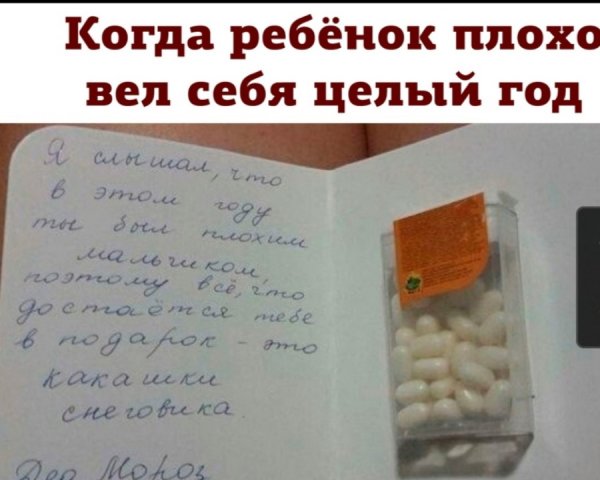 Когда ребёнок плохо
вел себя целый год
Я слышал, что
в этом году
ты был плохим
мальчиком,
поэтому всё, что
достаётся тебе
в подарок - это
какашки
снеговика.
Дед Мороз